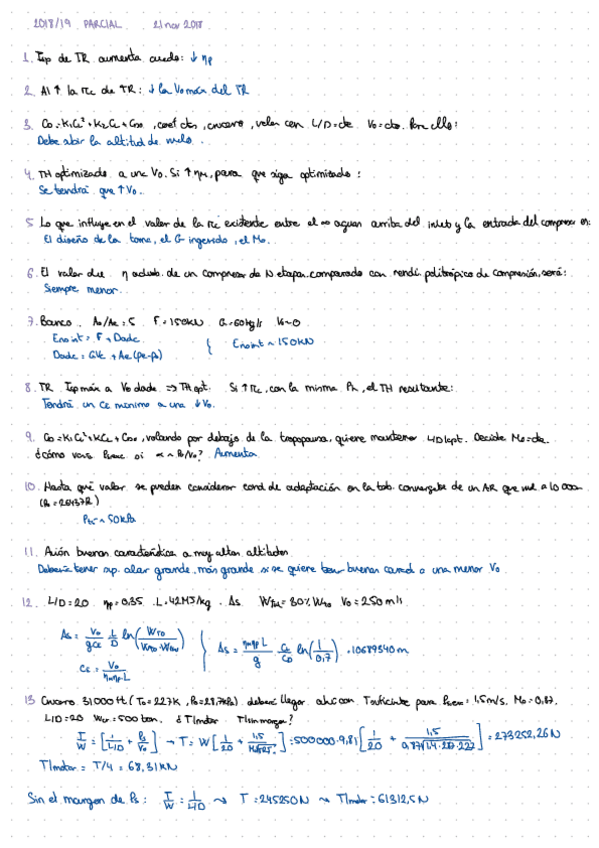 2018/19 PARCIAL 21 nov 2018
1. Isp de TR aumenta cuando: ↓ ηp
2. Al ↑ la πc de TR: ↓ la Vo máx del TR
3. CD = K1CL² + K2CL + CDo, coef ctes, crucero, velar con L/D = cte Vo = cte. Por ello:
Debe subir la altitud de vuelo.
4. TH optimizado a una Vo. Si ↑ ηM, para que siga optimizado:
Se tendrá que ↑ Vo.
5 Lo que influye en el valor de la πc existente entre el ∞ aguas arriba del inlet y la entrada del compresor es:
El diseño de la toma, el G ingerido, el Mo.
6. El valor del η adiab. de un compresor de N etapas comparado con rendi. politrópico de compresión, será:
Siempre menor.
7. Banco. Ao/Ae = 5 F = 150kN G = 60kg/s Vo~0
Eno int = F + Dadc
Dadc = GVe + Ae(pe-po)
Eno int ~ 150kN
8. TR Isp máx a Vo dada => TH opt. Si ↑ πc, con la misma Ph, el TH resultante:
Tendrá un CE mínimo a una ↓Vo.
9. CD = K1CL² + KCL + CDo, volando por debajo de la tropopausa, quiere mantener L/D|opt. Decide Mo = cte.
¿Cómo varía si α ~ Po/Vo? Aumenta
10. Hasta qué valor se pueden considerar cond. de adaptación en la tob. convergente de un AR que vuela a 10 000m
Pt5 ~ 50kPa
11. Avión buenas características a muy altas altitudes.
Debería tener sup. alar grande, más grande si se quiere tener buenas caract a una menor Vo
12. L/D = 20 ηp = 0,35 L = 42MJ/kg. Δs Wfuel = 30% WTO Vo = 250 m/s
Δs = Vo/gCE L/D ln(WTO/WTO-Wfuel)
CE = Vo/ηMηPL
Δs = ηMηPL/g CL/CD ln(1/0,7) = 10689340m
13 Crucero 31000 ft (To = 227K, Po = 28,7kPa) debería llegar ahí con T suficiente para = 1,5m/s. Mo = 0,87.
L/D = 20 Wcr = 500 ton. ¿T/motor T/sin margen?
T/W = [1/L/D + Ps/Vo] → T = W[1/20 + 1,5/] = 500000·9,81[1/20 + 1,5/0,87√1,4·287·227] = 273252,26N
T/motor = T/4 = 68,31KN
Sin el margen de Ps: T/W = 1/L/D → T = 245250N → T/motor = 61312,5N